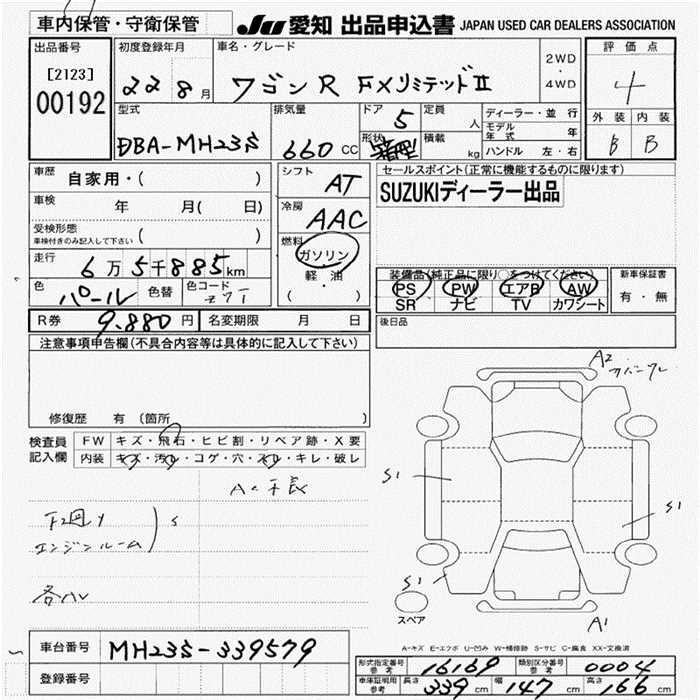 車内保管・守衛保管
JU 愛知 出品申込書 JAPAN USED CAR DEALERS ASSOCIATION
出品番号
[2123]
00192
初度登録年月
22 8月
車名・グレード
ワゴンR FXリミテッドⅡ
2WD
・
4WD
評価点
4
外装 内装
B B
型式
DBA-MH23S
排気量
660 CC
ドア 5
形状
定員 人
積載 kg
ディーラー・並行
モデル年式 年
ハンドル 左・右
車歴 自家用・( )
車検 年 月( 日)
受検形態
車検付きのみ記入して下さい ( )
走行 6万5千885km
色 パール 色替 色コード Z7T
シフト AT
冷房 AAC
燃料
ガソリン
・
軽・油
( )
セールスポイント(正常に機能するものに限ります)
SUZUKIディーラー出品
装備品(純正品に限り〇をつけてください)
PS PW エアB AW
SR ナビ TV カワシート
新車保証書
有・無
R券 9.880円 名変期限 月 日
後日品
注意事項申告欄(不具合内容等は具体的に記入して下さい)
修復歴 有(箇所 )
検査員
記入欄
FW キズ・飛石・ヒビ割・リペア跡・X要
内装 キズ・汚れ・コゲ・穴・スレ・キレ・破レ
エンジンルーム
S
各ハレ
A2
S1
S1
S1
A1
スペア
A-キズ E-エクボ U-凹み W-補修跡 S-サビ C-腐食 XX-交換済
車台番号 MH23S-339579
登録番号
形式指定番号 参考 16169 類別区分番号 参考 0004
車庫証明用 参考 長さ 339cm 幅 147cm 高さ 166cm